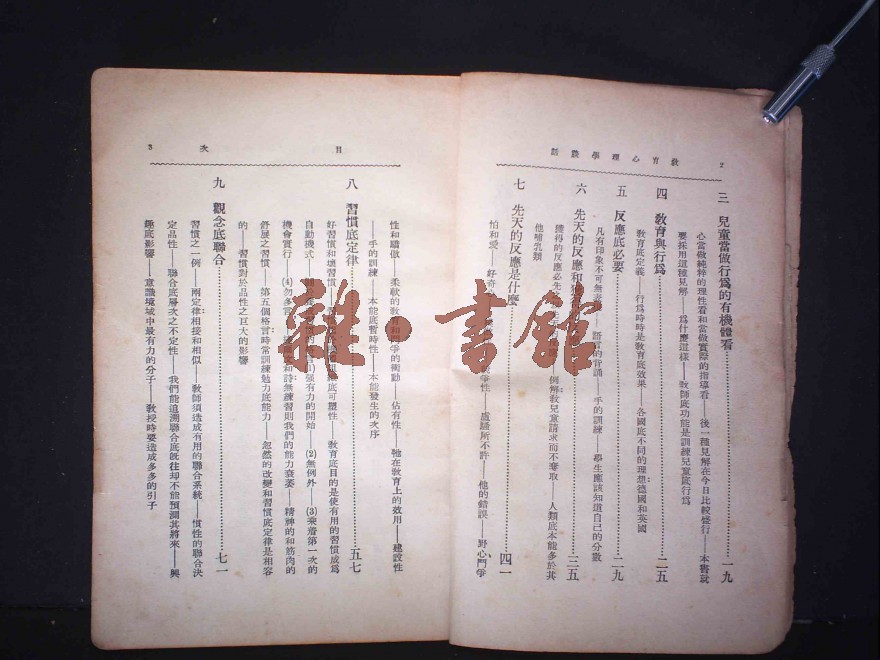 教育心理學談話
2
三 兒童當做行爲的有機體看 一九
心當做純粹的理性看和當做實際的指導看——後一種見解在今日比較盛行——本書就
要採用這種見解——爲什麼這樣——教師底功能是訓練兒童底行爲
四 教育與行爲 二五
教育底定義——行爲時時是教育底效果——各國底不同的理想:德國和英國
五 反應底必要 二九
凡有印象不可無表現——語言的背誦——手的訓練——學生應該知道自己的分數
六 先天的反應和 三五
獲得的反應必先 例解:教兒童請求而不奪取——人類底本能多於其
他哺乳類
七 先天的反應是什麼 四一
怕和愛——好奇 爭性——盧騷所不許——他的錯誤——野心鬥爭
目次
3
性和驕傲——柔軟的教育和鬥爭的衝動——佔有性——牠在教育上的效用——建設性
——手的訓練——本能底暫時性——本能發生的次序
八 習慣底定律 五七
好習慣和壞習慣—— 底可塑性——教育底目的是使有用的習慣成爲
自動機式—— (1)強有力的開始——(2)無例外——(3)乘着第一次的
機會實行——(4)勿多言 和詩:無練習則我們的能力衰萎——精神的和筋肉的
舒展之習慣——第五個格言:時常訓練勉力底能力——忽然的改變和習慣底定律是相容
的——習慣對於品性之巨大的影響
九 觀念底聯合 七一
習慣之一例——兩定律:相接和相似——教師須造成有用的聯合系統——慣性的聯合決
定品性——聯合底層次之不定性——我們能追溯聯合底既往却不能預測其將來——興
趣底影響——意識境域中最有力的分子——教授時要造成多多的引子
雜·書館